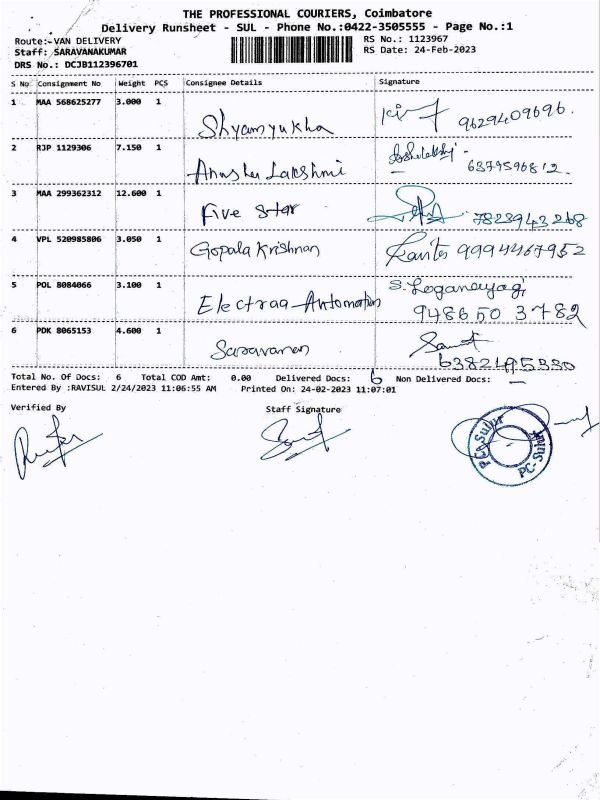 THE PROFESSIONAL COURIERS, Coimbatore
Delivery Runsheet - SUL - Phone No.:0422-3505555 - Page No.:1
Route:-VAN DELIVERY RS No.: 1123967
Staff: SARAVANAKUMAR RS Date: 24-Feb-2023
DRS No.: DCJB112396701
S No Consignment No Weight PCS Consignee Details Signature
1 MAA 568625277 3.000 1
Shyamyukha 9629409696.
2 RJP 1129306 7.150 1
Anusha Lakshmi 6379596812.
3 MAA 299362312 12.600 1
Five star 7823943268
4 VPL 520985806 3.050 1
Gopala Krishnan Kavitha 9994467952
5 POL 8084066 3.100 1 S. Loganayagi
Electraa Automation 948650 3782
6 PDK 8065153 4.600 1
Saravanan 6382495330
Total No. Of Docs: 6 Total COD Amt: 0.00 Delivered Docs: 6 Non Delivered Docs: —
Entered By :RAVISUL 2/24/2023 11:06:55 AM Printed On: 24-02-2023 11:07:01
Verified By Staff Signature
PC-Sulur
PC-Sulur